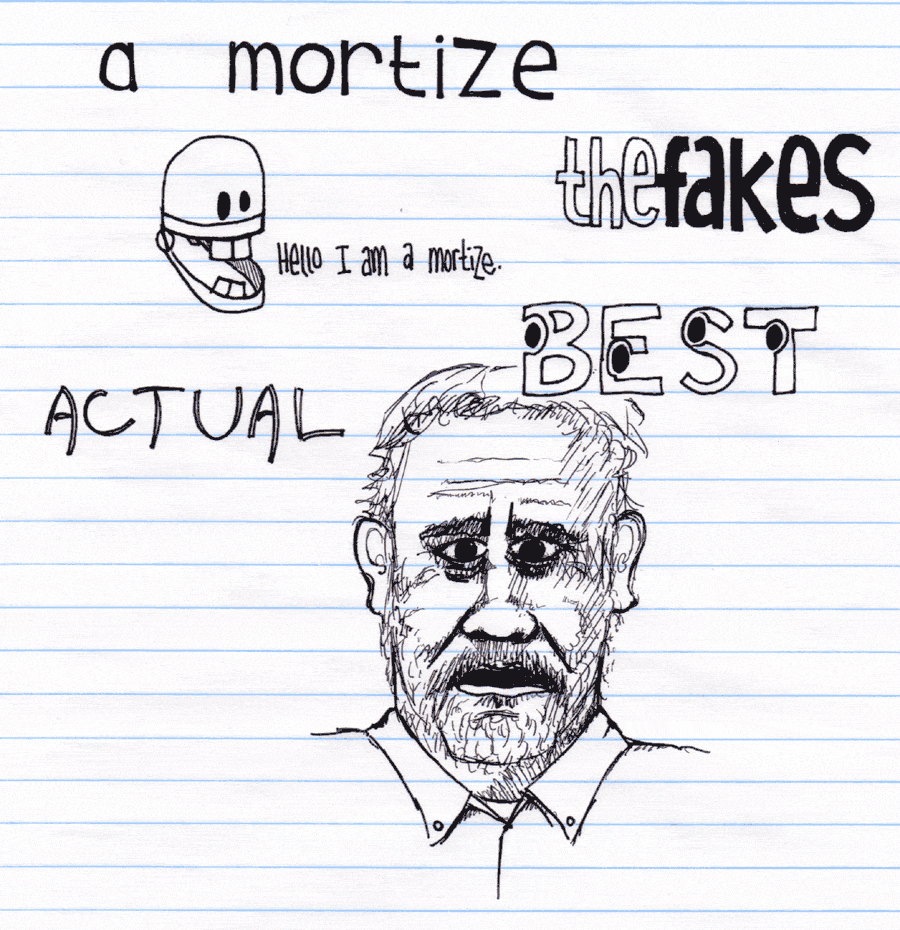 a mortize
thefakes
Hello I am a mortize.
BEST
ACTUAL